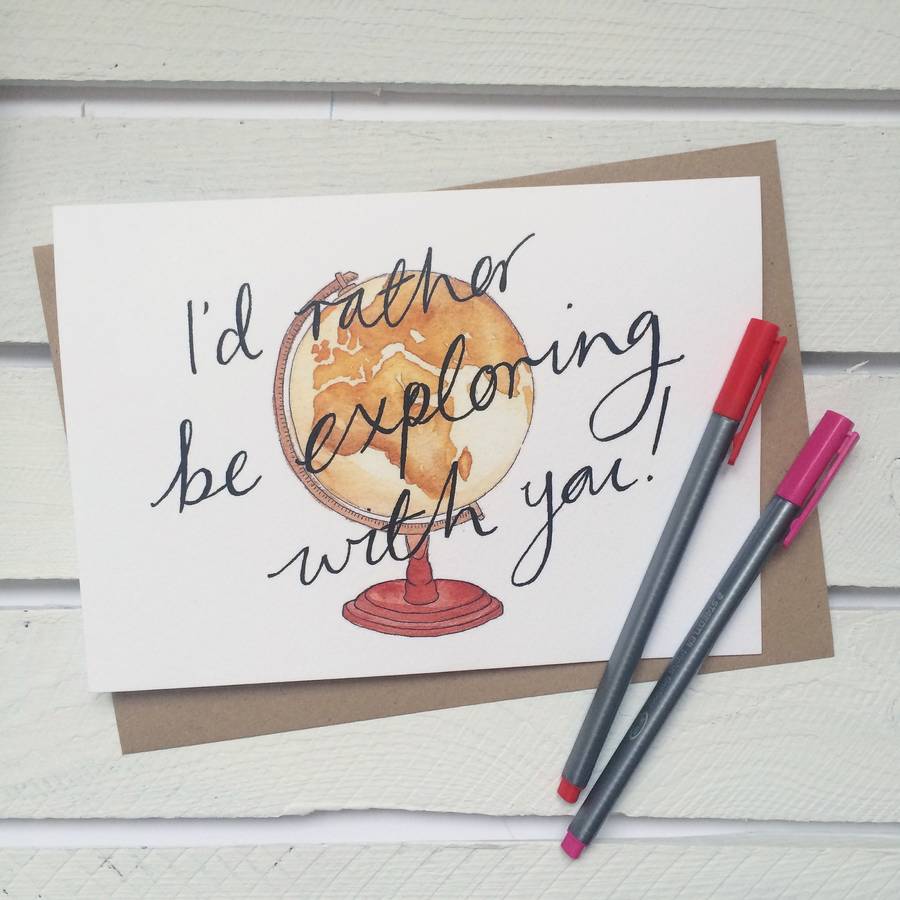 I'd rather
be exploring
with you!
STAEDTLER